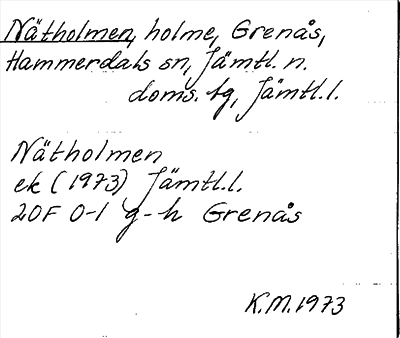 Nätholmen, holme, Grenås,
Hammerdals sn, Jämtl. n.
doms. tg, Jämtl. l.
Nätholmen
ek (1973) Jämtl. l.
20F 0-1 g-h Grenås
K.M. 1973